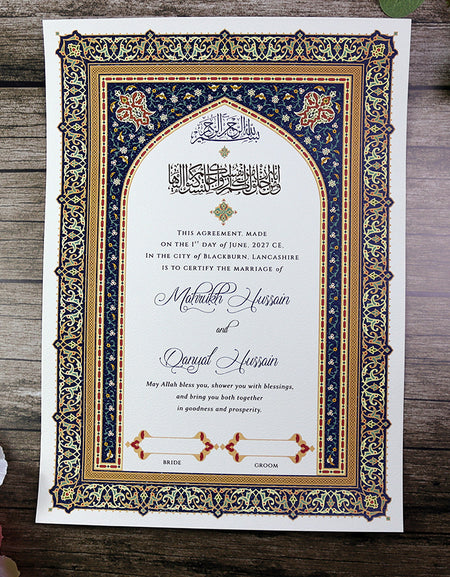 بسم الله الرحمن الرحيم
THIS AGREEMENT, MADE
ON THE 1ST DAY OF JUNE, 2027 CE,
IN THE CITY OF BLACKBURN, LANCASHIRE
IS TO CERTIFY THE MARRIAGE OF
Mahrukh Hussain
and
Danyal Hussain
May Allah bless you, shower you with blessings,
and bring you both together
in goodness and prosperity.
BRIDE GROOM